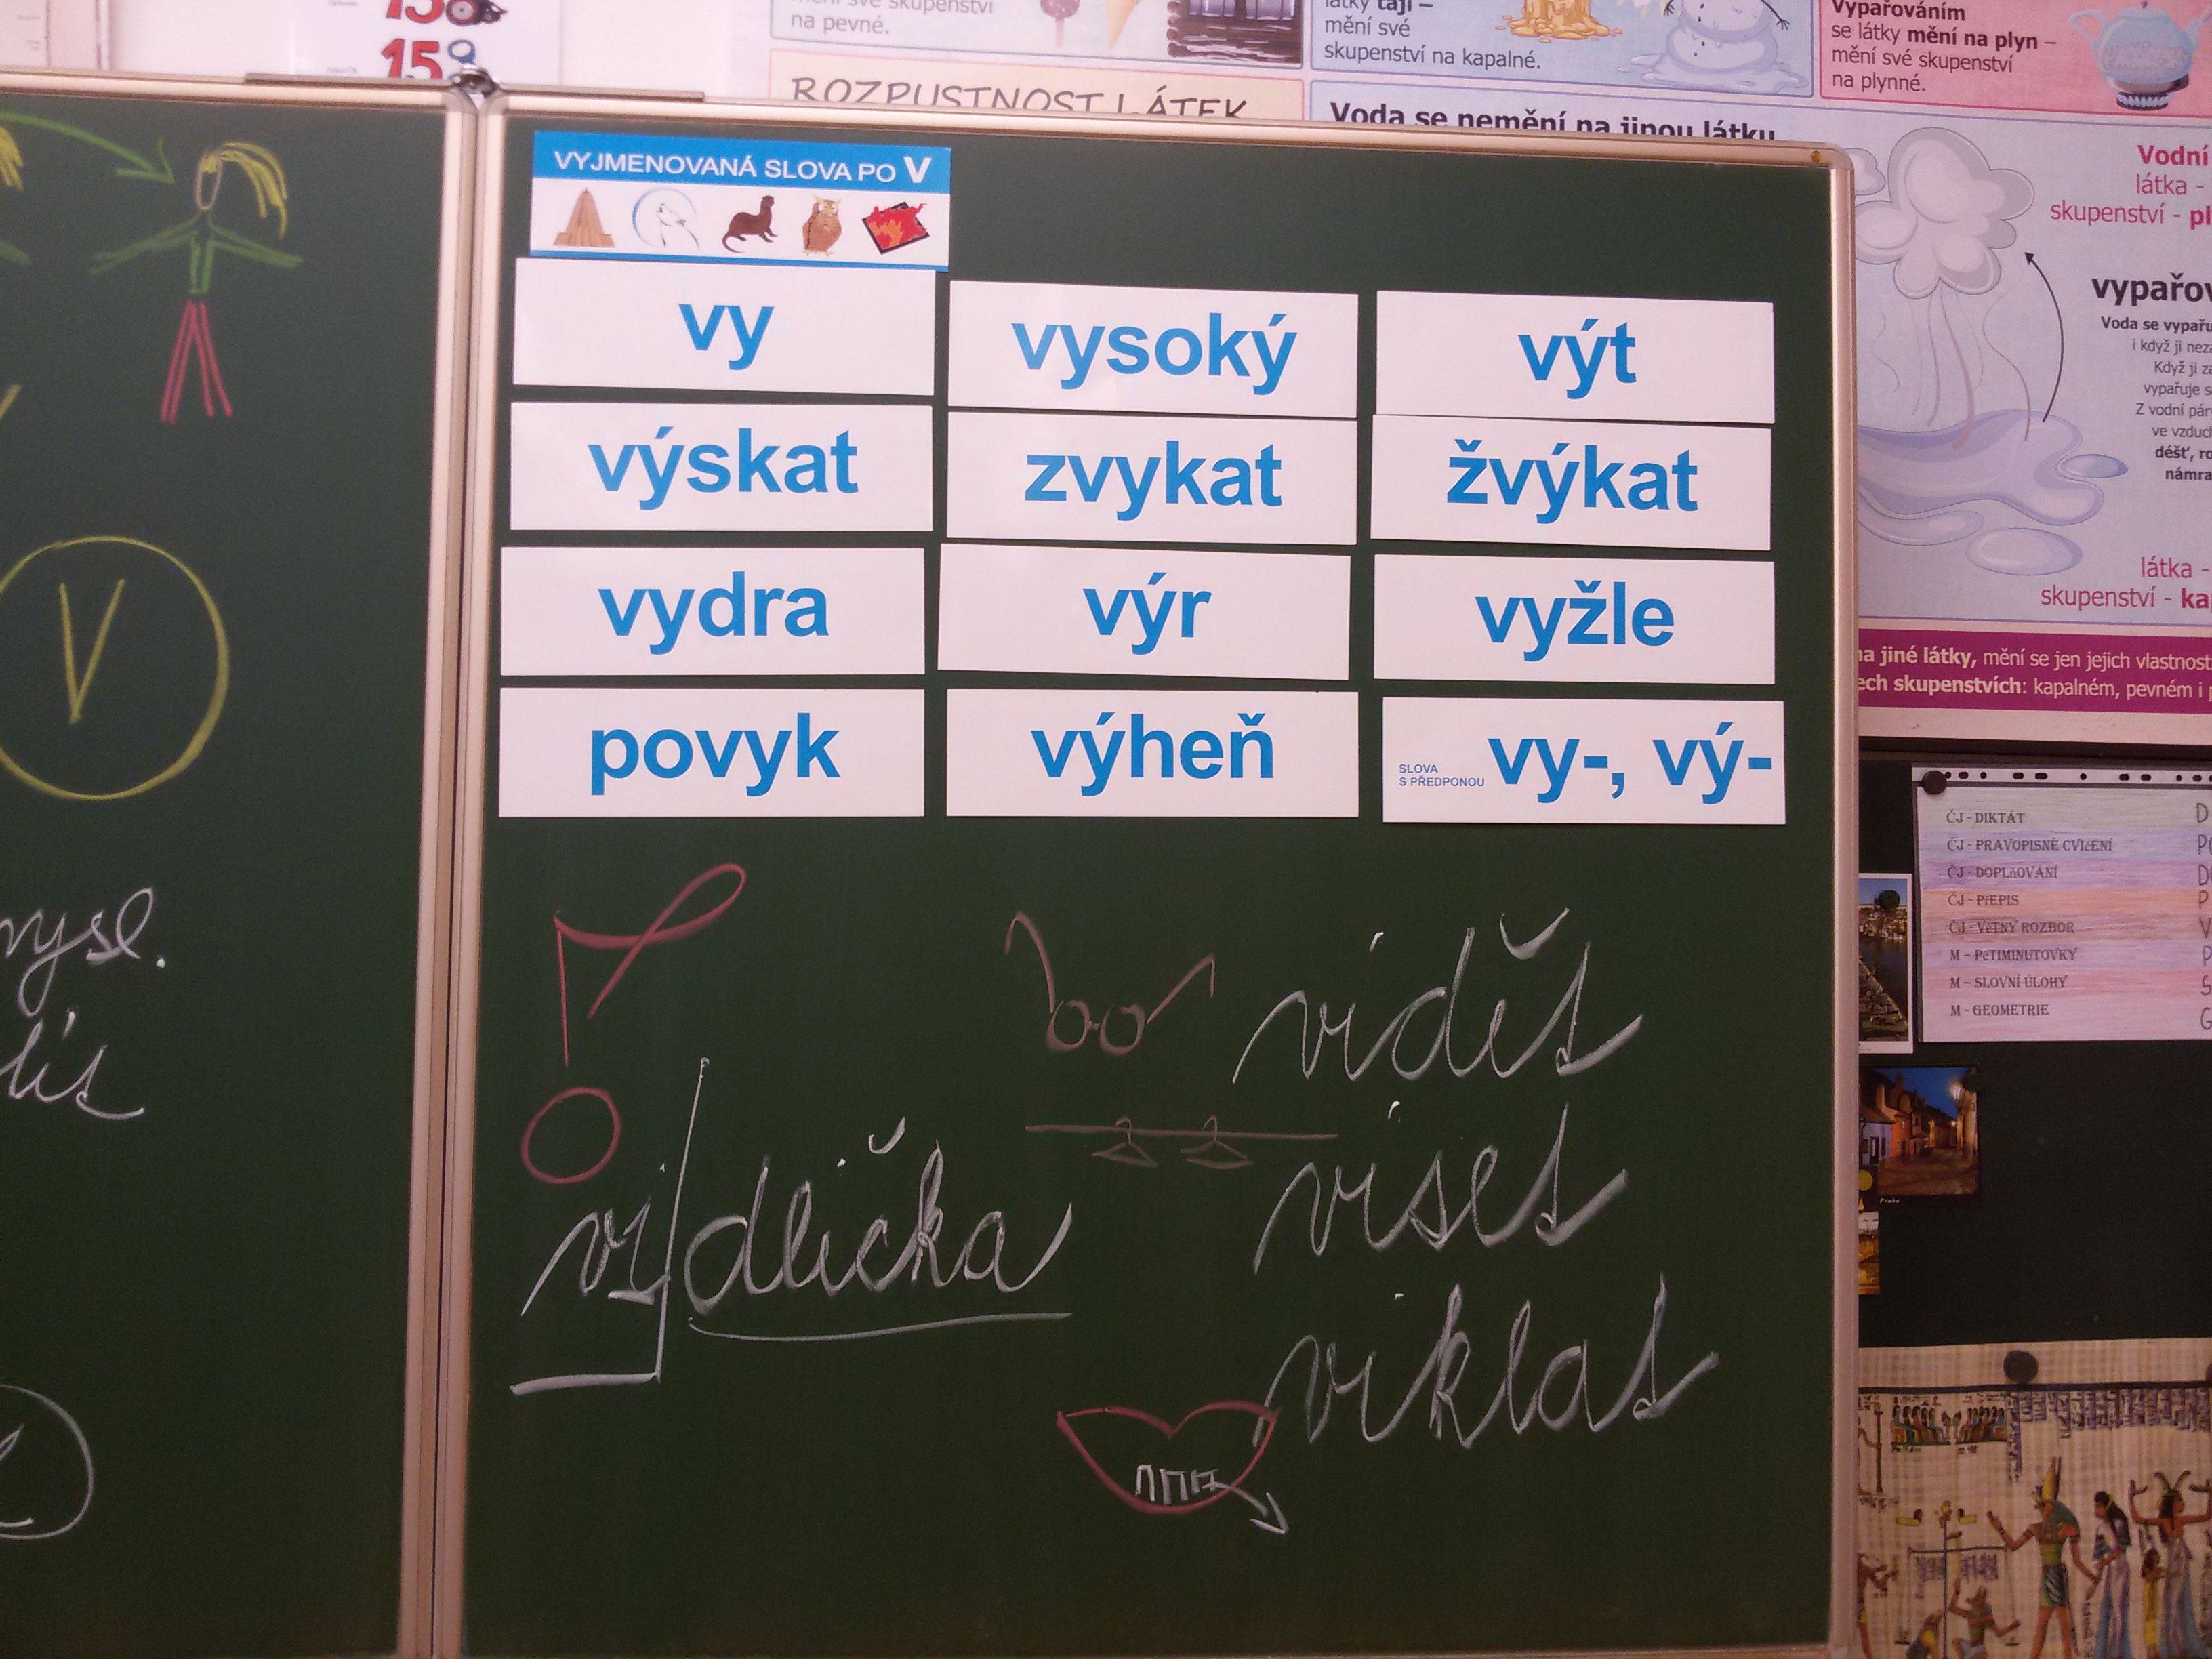 158
na pevné.
látky tají –
mění své
skupenství na kapalné.
Vypařováním
se látky mění na plyn –
mění své skupenství
na plynné.
ROZPUSTNOST LÁTEK
Voda se nemění na jinou látku
VYJMENOVANÁ SLOVA PO V
vy vysoký výt
výskat zvykat žvýkat
vydra výr vyžle
povyk výheň SLOVA S PŘEDPONOU vy-, vý-
V
vidět
viset
viklat
Vodní
látka -
skupenství - pl
vypařov
Voda se vypařu
i když ji neza
Když ji za
vypařuje s
Z vodní pár
ve vzduch
déšť, ro
námra
látka -
skupenství - ka
na jiné látky, mění se jen jejich vlastnost
ech skupenstvích: kapalném, pevném i p
ČJ - DIKTÁT D
ČJ - PRAVOPISNÉ CVIčENÍ
ČJ - DOPLňOVÁNÍ
ČJ - PřEPIS P
ČJ - VěTNÝ ROZBOR V
M – PěTIMINUTOVKY P
M – SLOVNÍ ÚLOHY S
M - GEOMETRIE G
Praha